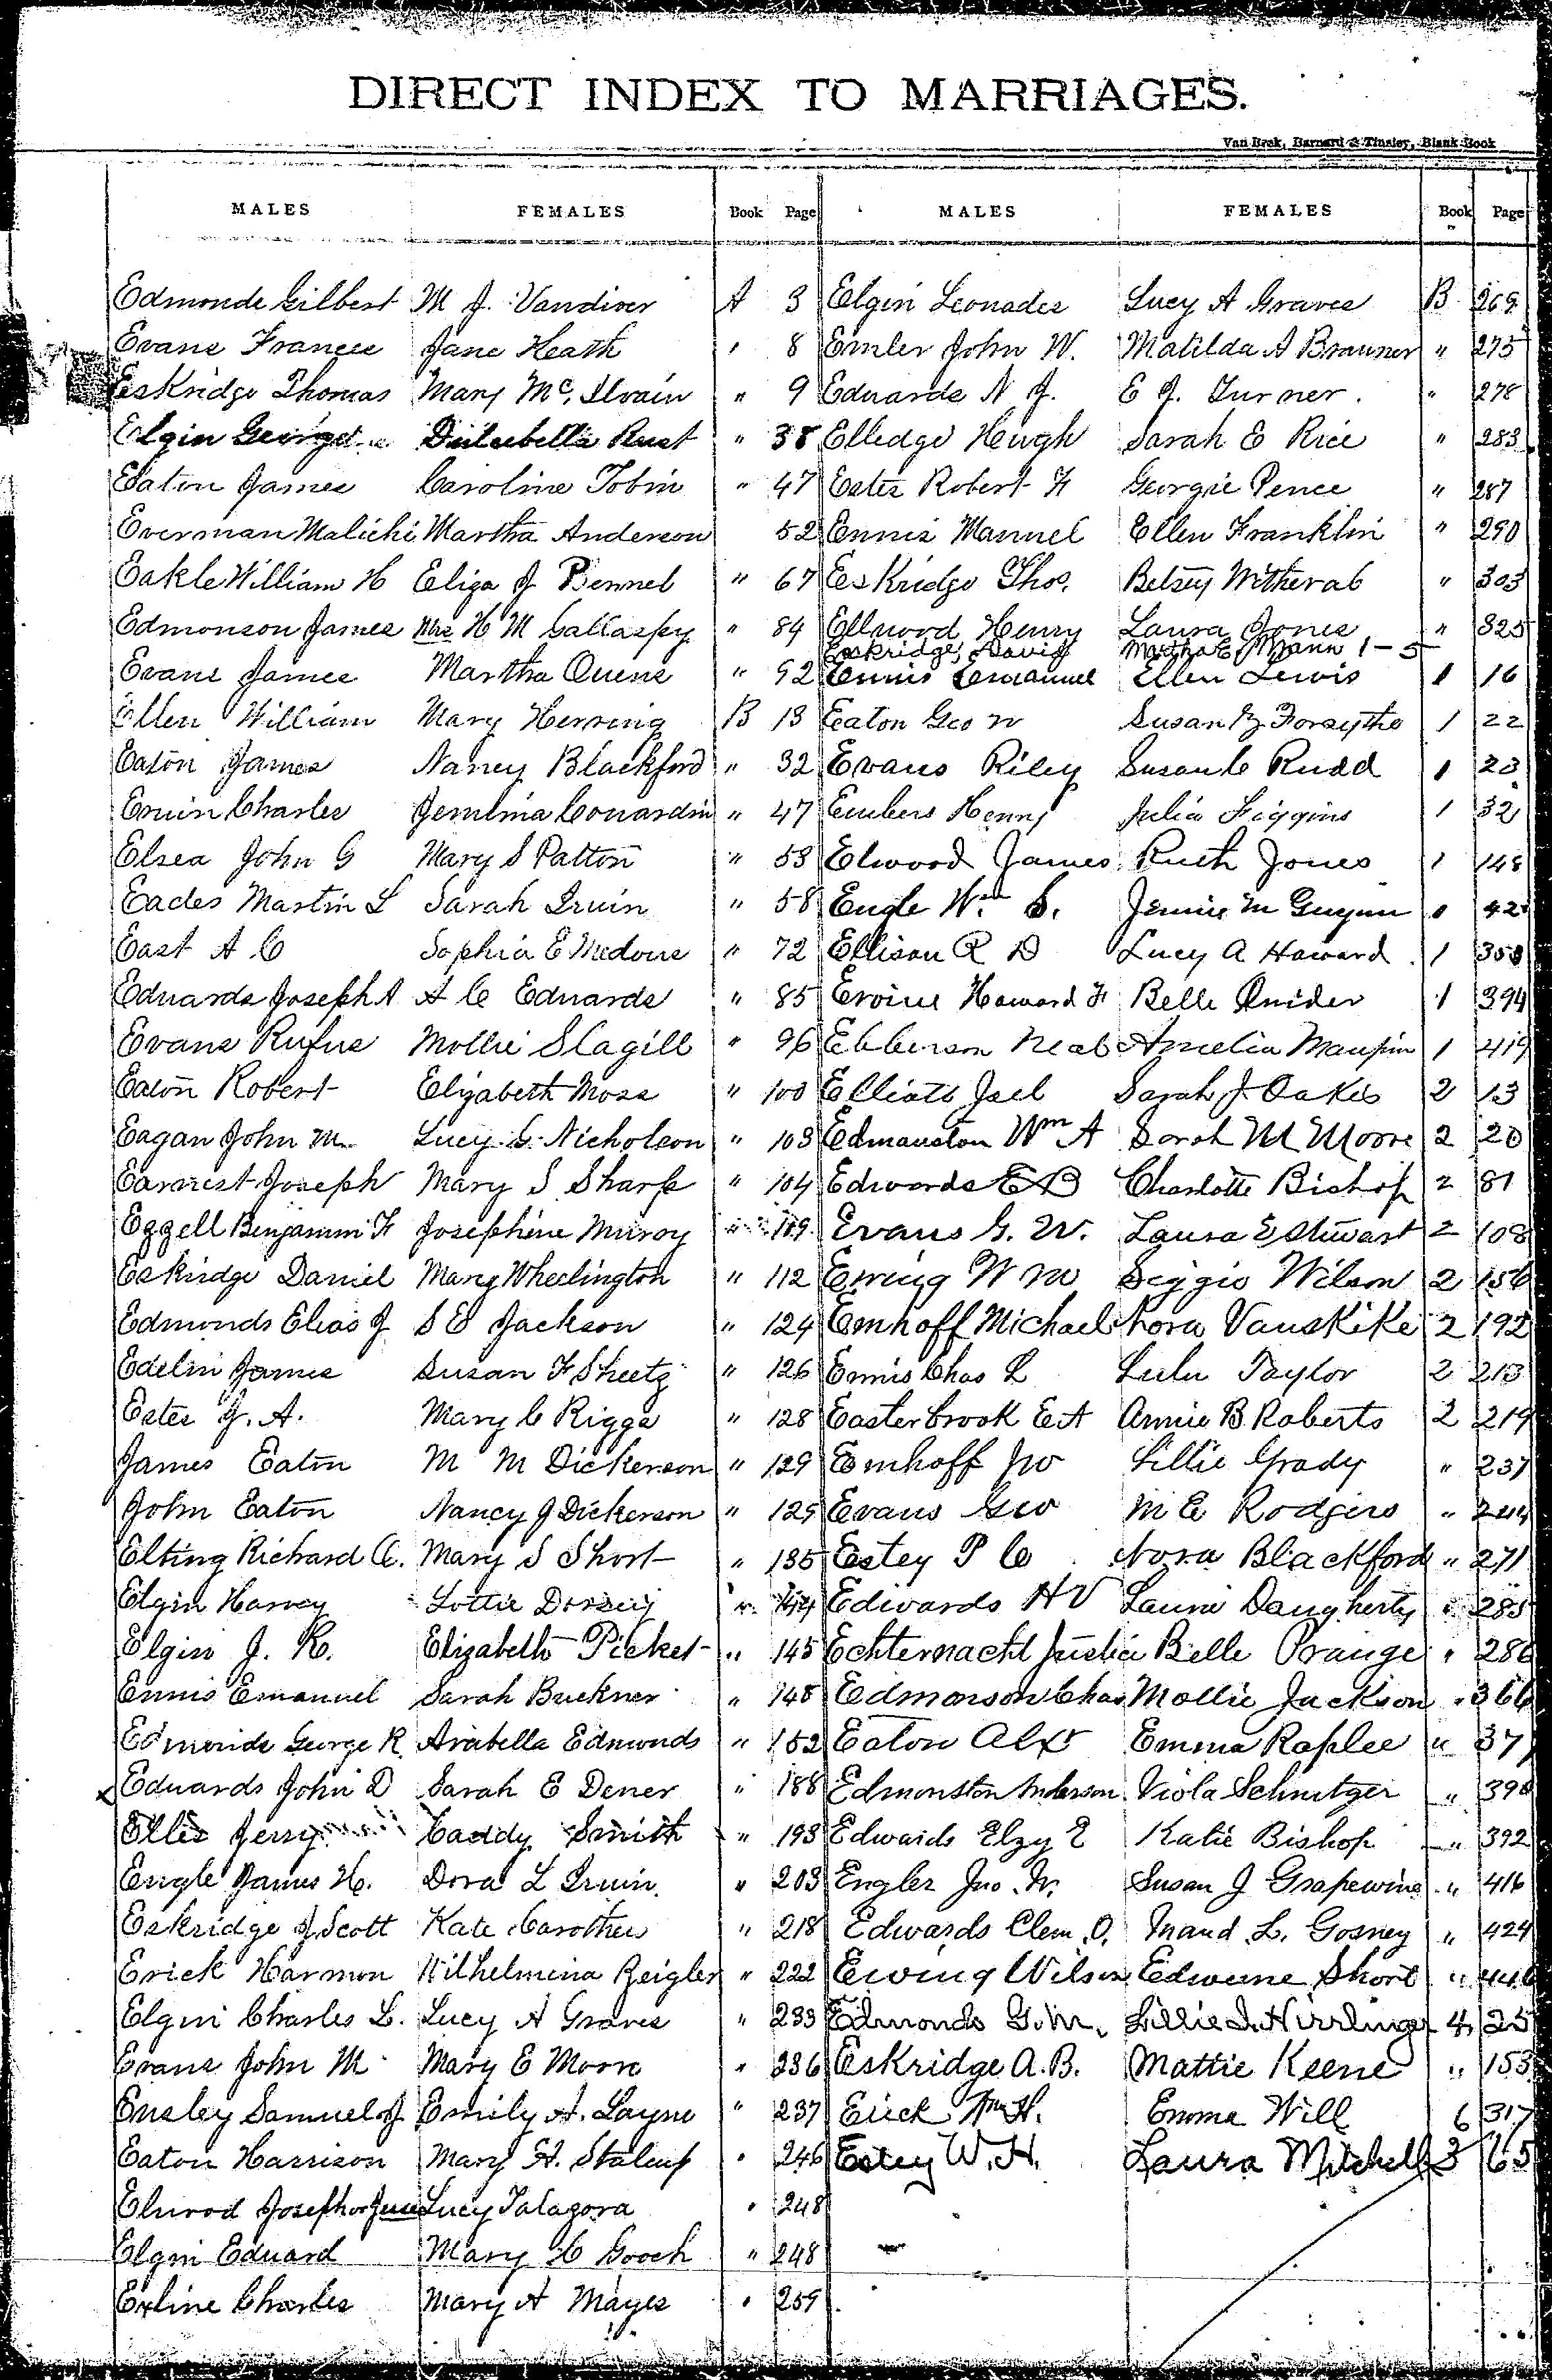 DIRECT INDEX TO MARRIAGES.
Van Beek, Barnard & Tinsley, Blank Book
MALES FEMALES Book Page MALES FEMALES Book Page
Edmonds Gilbert M J. Vandiver A 3 Elgin Leonades Lucy A Graves B 269
Evans Francis Jane Heath " 8 Emler John W. Matilda A Brauner " 275
Eskridge Thomas Mary Mc. Ilvain " 9 Edwards N J. E J. Turner. " 278
Elgin George Rust " 38 Elledge Hugh Sarah E Rice " 283
Eaton James Caroline Tobin " 47 Estes Robert H Georgie Pence " 287
Everman Malichi Martha Anderson 52 Ennis Manuel Ellen Franklin " 290
Eakle William H Eliza J Bennel " 67 Eskridge Thos. Betsey Witherab " 303
Edmonson James Mrs H M Gallaspy " 84 Ellwood Henry Laura Jones " 325
Eskridge, David Martha E. Mann 1 - 5
Evans James Martha Owens " 92 Ennis Emanuel Ellen Lewis 1 16
Ellen William Mary Herring B 13 Eaton Geo W Susan Forsythe 1 22
Eaton James Nancy Blackford " 32 Evans Riley Susan C Rudd 1 23
Erwin Charles Jemima Conardin " 47 Embers Henry Julia Figgins 1 32
Elsea John G Mary S Patton " 53 Elwood James Ruth Jones 1 148
Eades Martin L Sarah Irwin " 58 Engle Wm S. Jennie M Guynn " 42
East A C Sophia E Medows " 72 Ellison R D Lucy A Howard 1 350
Edwards Joseph A A C Edwards " 85 Ervine Howard F Belle Snider 1 394
Evans Rufus Mollie Slagill " 96 Ebberson Neal Amelia Maupin 1 419
Eaton Robert Elizabeth Moss " 100 Elliott Joel Sarah J Oakes 2 13
Eagan John M. Lucy C. Nicholson " 103 Edmonston Wm A Sarah M Moore 2 20
Earnest Joseph Mary S Sharp " 104 Edwards E B Charlotte Bishop 2 81
Ezzell Benjamin F Josephine Munroy " 109 Evans G. W. Laura E Stewart 2 108
Eskridge Daniel Mary Wheelington " 112 Ewing W M Wilson 2 156
Edmonds Elias J S E Jackson " 124 Emhoff Michael Nora Vanskike 2 192
Edelin James Susan F Sheetz " 126 Ennis Chas L Lulu Taylor 2 213
Estes J. A. Mary C Riggs " 128 Easterbrook E A Annie B Roberts 2 219
James Eaton M M Dickerson " 129 Emhoff Jno Lillie Grady " 237
John Eaton Nancy J Dickerson " 129 Evans Geo M E Rodgers " 244
Elting Richard C. Mary S Short " 135 Estey P C Nora Blackford " 271
Elgin Harvey Lottie Dorsey " 144 Edwards H V Laura Daugherty " 285
Elgin J. R. Elizabeth Picket " 145 Echternacht Belle Orange " 286
Ennis Emanuel Sarah Buckner " 148 Edmonson Chas Mollie Jackson " 366
Edmonds George R. Arabella Edmonds " 152 Eaton Alex Emma Raplee " 377
x Edwards John D Sarah E Dener " 188 Edmonston Anderson Viola Schnitzer " 390
Ellis Jerry Caddy Smith " 193 Edwards Elzy E Katie Bishop " 392
Engle James H. Dora L Irwin " 203 Engler Jno. W. Susan J Grapewine " 416
Eskridge J. Scott Kate Carothers " 218 Edwards Clem. O. Maud L. Gosney " 424
Erick Harmon Wilhelmina Zeigler " 222 Ewing Wilson Edwene Short " 446
Elgin Charles L. Lucy A Graves " 233 Edmonds G. M. Lillie I. Hirrlinger 4 25
Evans John M Mary E Moore " 236 Eskridge A. B. Mattie Keene " 153
Ensley Samuel J Emily A. Layne " 237 Euck Wm H. Emma Will 6 317
Eaton Harrison Mary H. Stalcup " 246 Estey W. H. Laura Mitchell 3 65
Elwood Joseph or Jesse Lucy Talazora " 248
Elgin Edward Mary H Gooch " 248
Exline Charles Mary A Mayes " 259